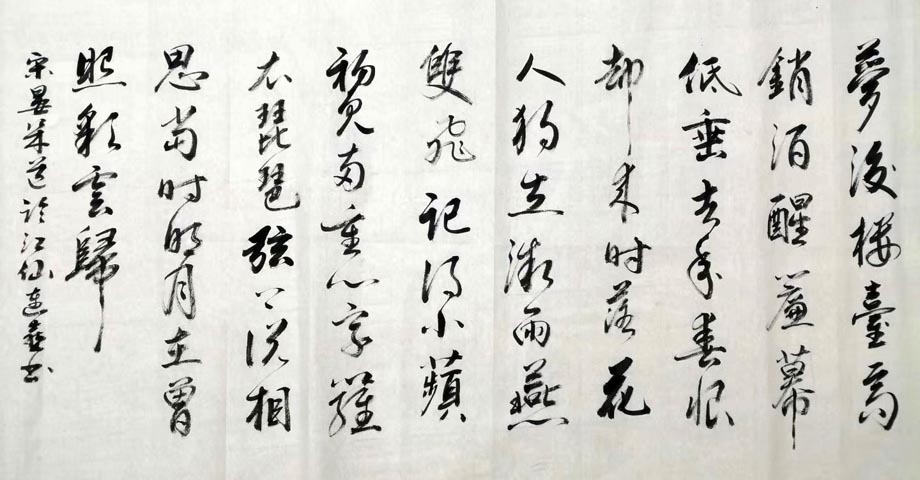 夢後樓臺高
鎖酒醒簾幕
低垂去年春恨
却来时落花
人独立微雨燕
雙飛记得小蘋
初见两重心字羅
衣琵琶弦上说相
思当时明月在曾
照彩雲歸
宋晏幾道临江仙连书